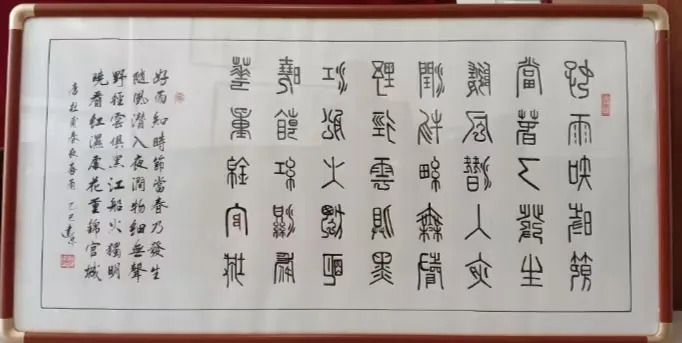 好雨知時節
當春乃發生
隨風潛入夜
潤物細無聲
野徑雲俱黑
江船火獨明
曉看紅濕處
花重錦官城
好雨知時節當春乃發生
隨風潛入夜潤物細無聲
野徑雲俱黑江船火獨明
曉看紅濕處花重錦官城
唐杜甫春夜喜雨 乙巳